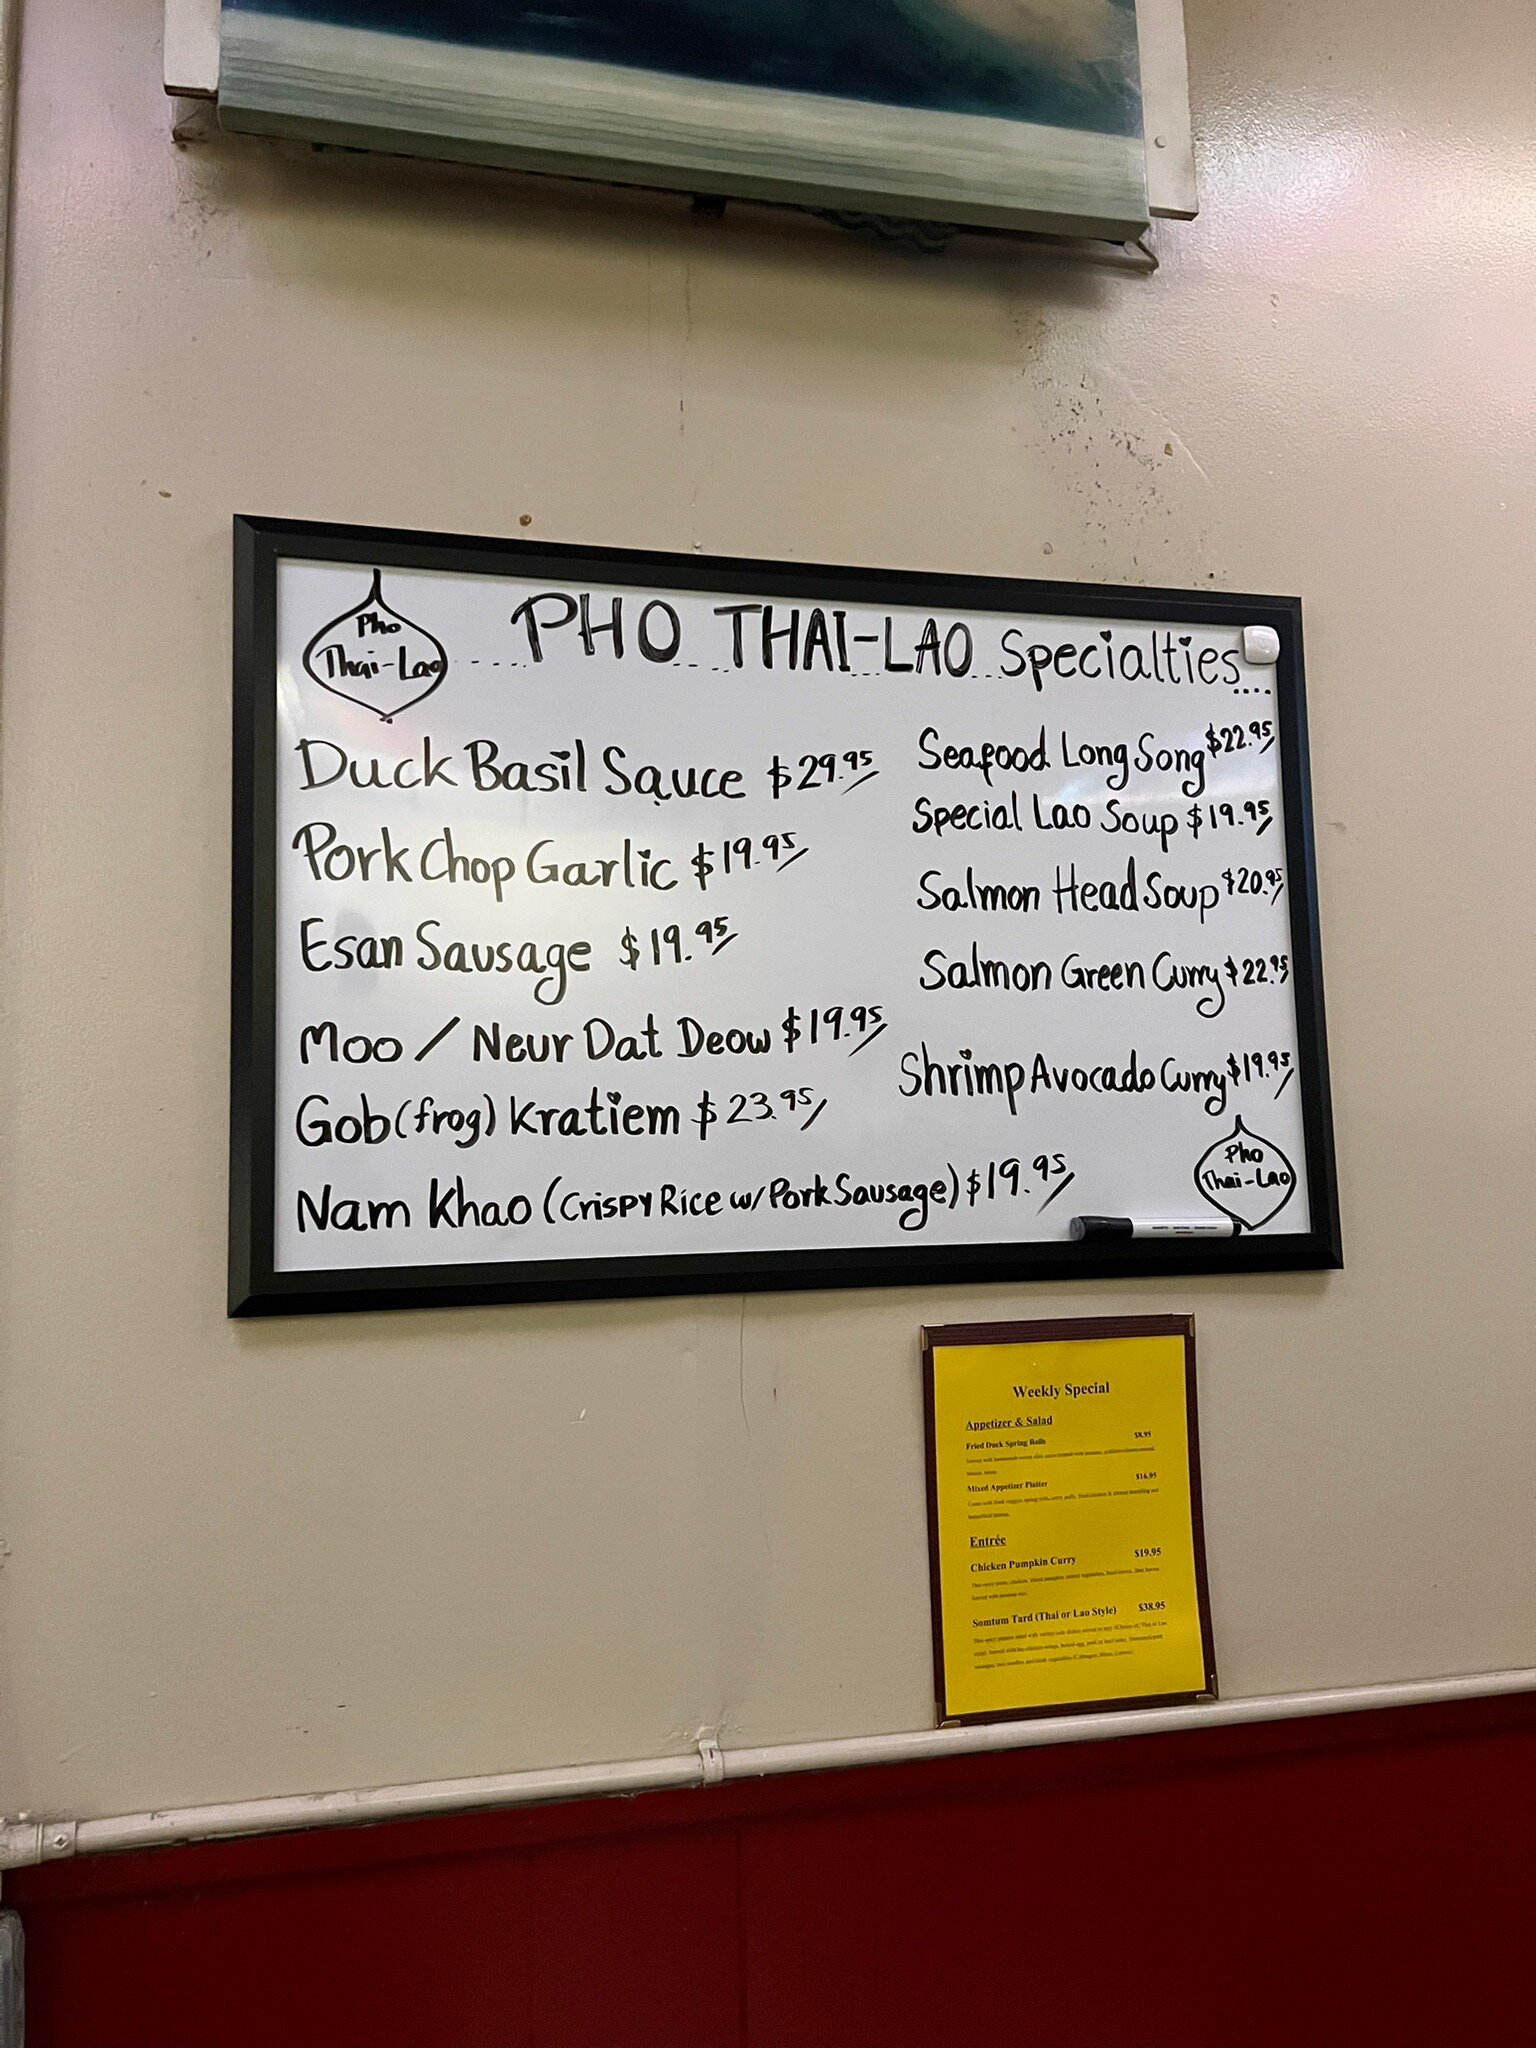 Pho
Thai-Lao
PHO THAI-LAO Specialties....
Duck Basil Sauce $29.95
Pork Chop Garlic $19.95
Esan Sausage $19.95
Moo / Neur Dat Deow $19.95
Gob (frog) Kratiem $23.95
Nam Khao (Crispy Rice w/ Pork Sausage) $19.95
Seafood Long Song $22.95
Special Lao Soup $19.95
Salmon Head Soup $20.95
Salmon Green Curry $22.95
Shrimp Avocado Curry $19.95
Pho
Thai-Lao
Weekly Special
Appetizer & Salad
Fried Duck Spring Rolls $8.95
Mixed Appetizer Platter $16.95
Entrée
Chicken Pumpkin Curry $19.95
Somtum Tard (Thai or Lao Style) $38.95